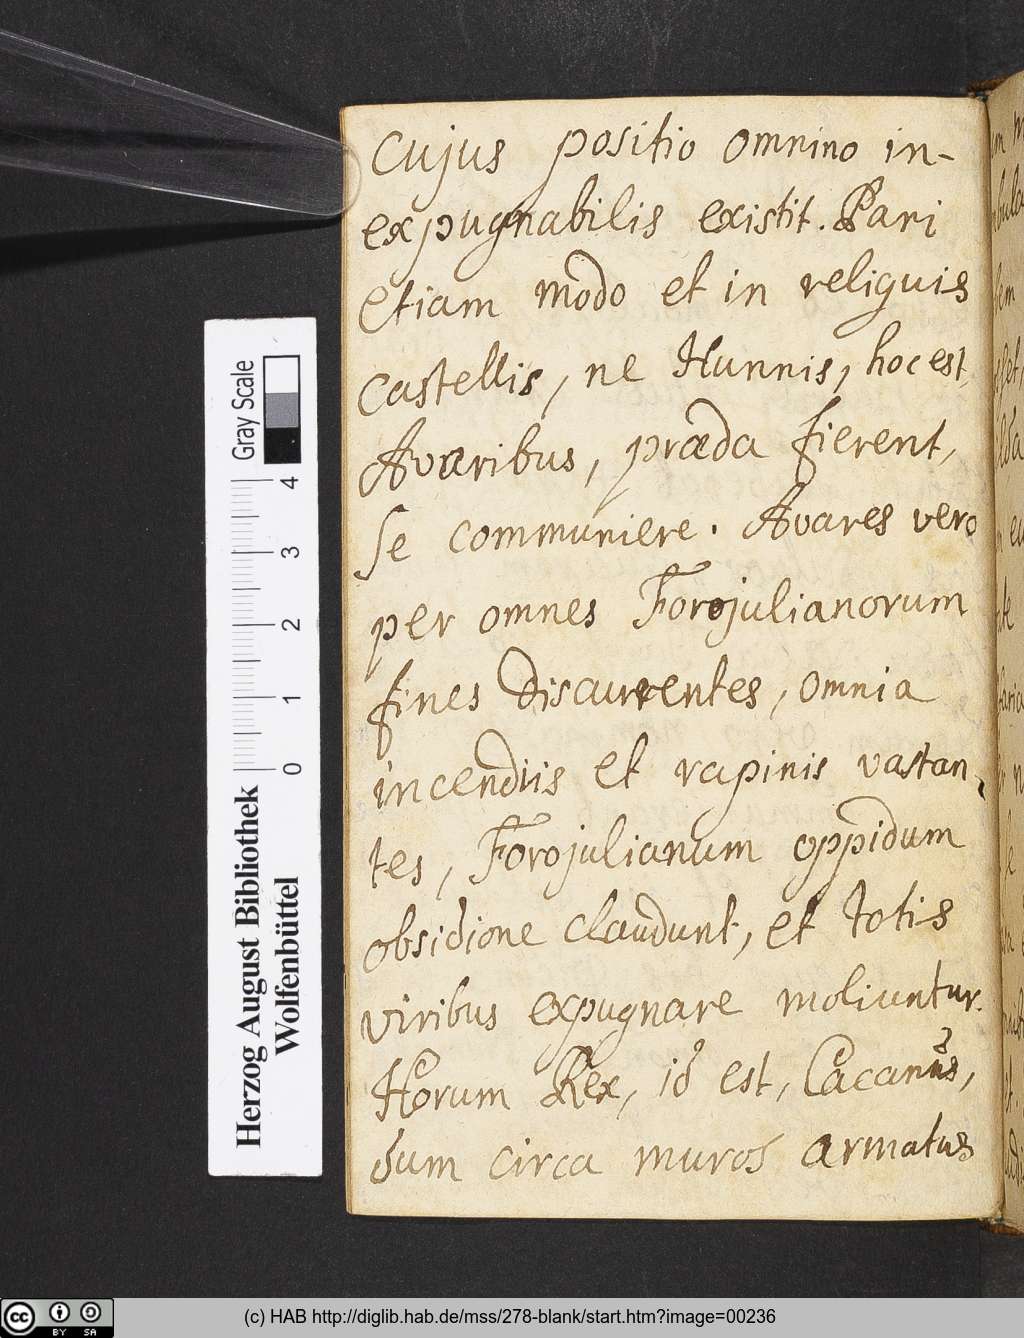 cujus positio omnino in-
expugnabilis existit. Pari
etiam modo et in reliquis
castellis, ne Hunnis, hoc est,
Avaribus, præda fierent,
se communiere. Avares vero
per omnes Forojulianorum
fines discurrentes, omnia
incendiis et rapinis vastan-
tes, Forojulianum oppidum
obsidione claudunt, et totis
viribus expugnare moliuntur.
Horum Rex, id est, Cacanus,
dum circa muros armatus
Gray Scale
4
3
2
1
0
Herzog August Bibliothek
Wolfenbüttel
cc BY SA
(c) HAB http://diglib.hab.de/mss/278-blank/start.htm?image=00236